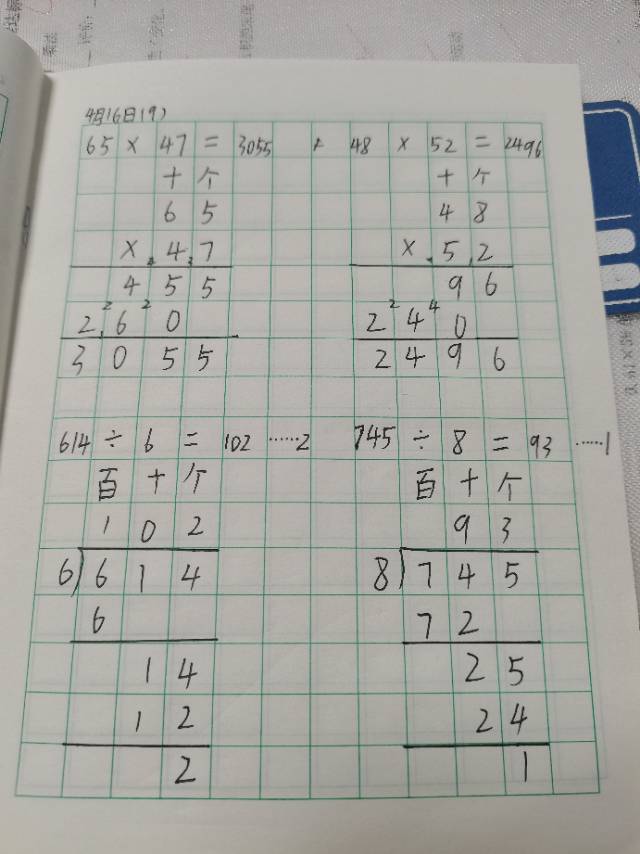 4月16日(9)
65 × 47 = 3055
48 × 52 = 2496
十 个
6 5
× 4 7
4 5 5
2 6 0
3 0 5 5
十 个
4 8
× 5 2
9 6
2 4 0
2 4 9 6
614 ÷ 6 = 102 ……2
745 ÷ 8 = 93 ……1
百 十 个
1 0 2
6 ) 6 1 4
6
1 4
1 2
2
百 十 个
9 3
8 ) 7 4 5
7 2
2 5
2 4
1